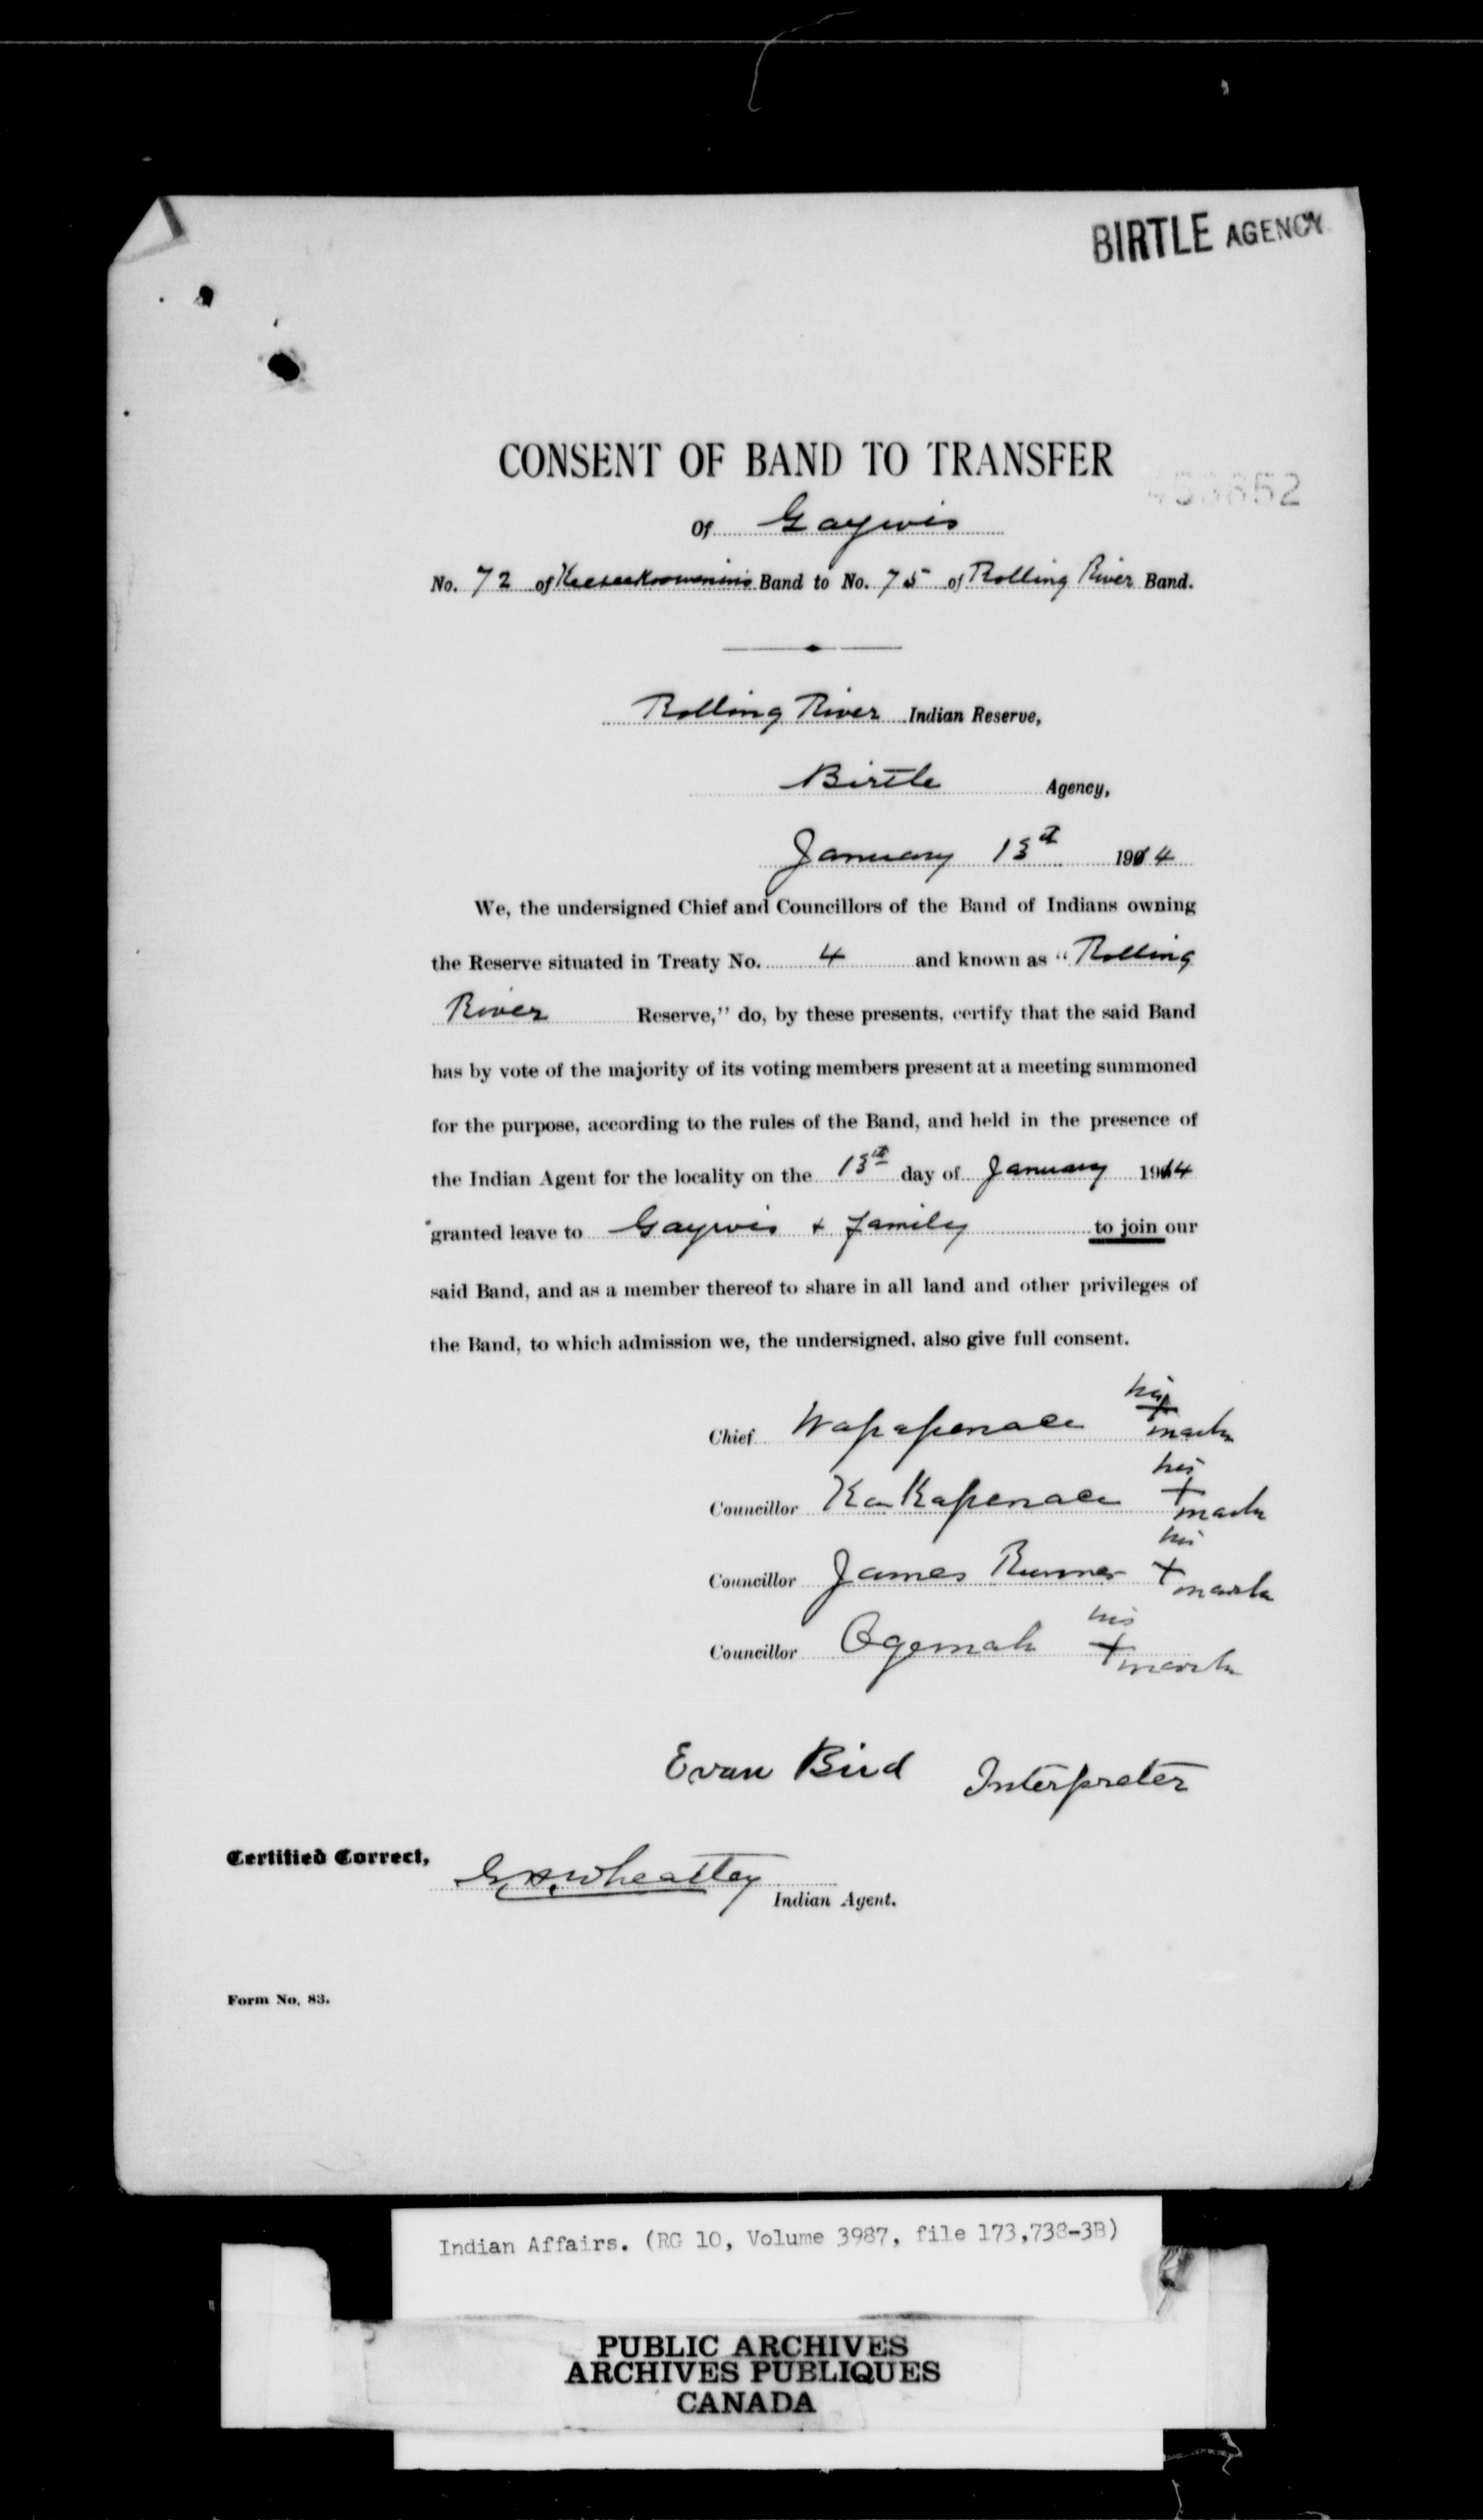 BIRTLE AGENCY
CONSENT OF BAND TO TRANSFER
Of Gaywis
No. 72 of Keeseekoowenins Band to No. 75 of Rolling River Band.
Rolling River Indian Reserve,
Birtle Agency,
January 13th 1914
We, the undersigned Chief and Councillors of the Band of Indians owning
the Reserve situated in Treaty No. 4 and known as "Rolling
River Reserve," do, by these presents, certify that the said Band
has by vote of the majority of its voting members present at a meeting summoned
for the purpose, according to the rules of the Band, and held in the presence of
the Indian Agent for the locality on the 13th day of January 1914
granted leave to Gaywis + family to join our
said Band, and as a member thereof to share in all land and other privileges of
the Band, to which admission we, the undersigned, also give full consent.
Chief Wapapenace his + mark
Councillor KaKapenace his + mark
Councillor James Runner his + mark
Councillor Ogemah his + mark
Evan Bird Interpreter
Certified Correct,
G. H. Wheatley
Indian Agent.
Form No. 83.
Indian Affairs. (RG 10, Volume 3987, file 173,738-3B)
PUBLIC ARCHIVES
ARCHIVES PUBLIQUES
CANADA